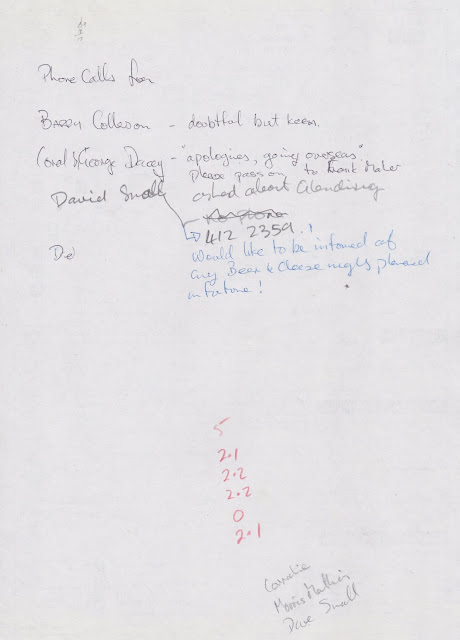 Phone Calls from
Barry Collerson - doubtful but keen.
Coral & George Dacey - "apologies, going overseas"
please pass on to Frank Maher
David Small asked about Glendining
No phone
412 2359.!
De
Would like to be informed of
any Beer & Cheese nights planned
in fortune!
5
2.1
2.2
2.2
0
2.1
Cornelia
Morris
Dave Small